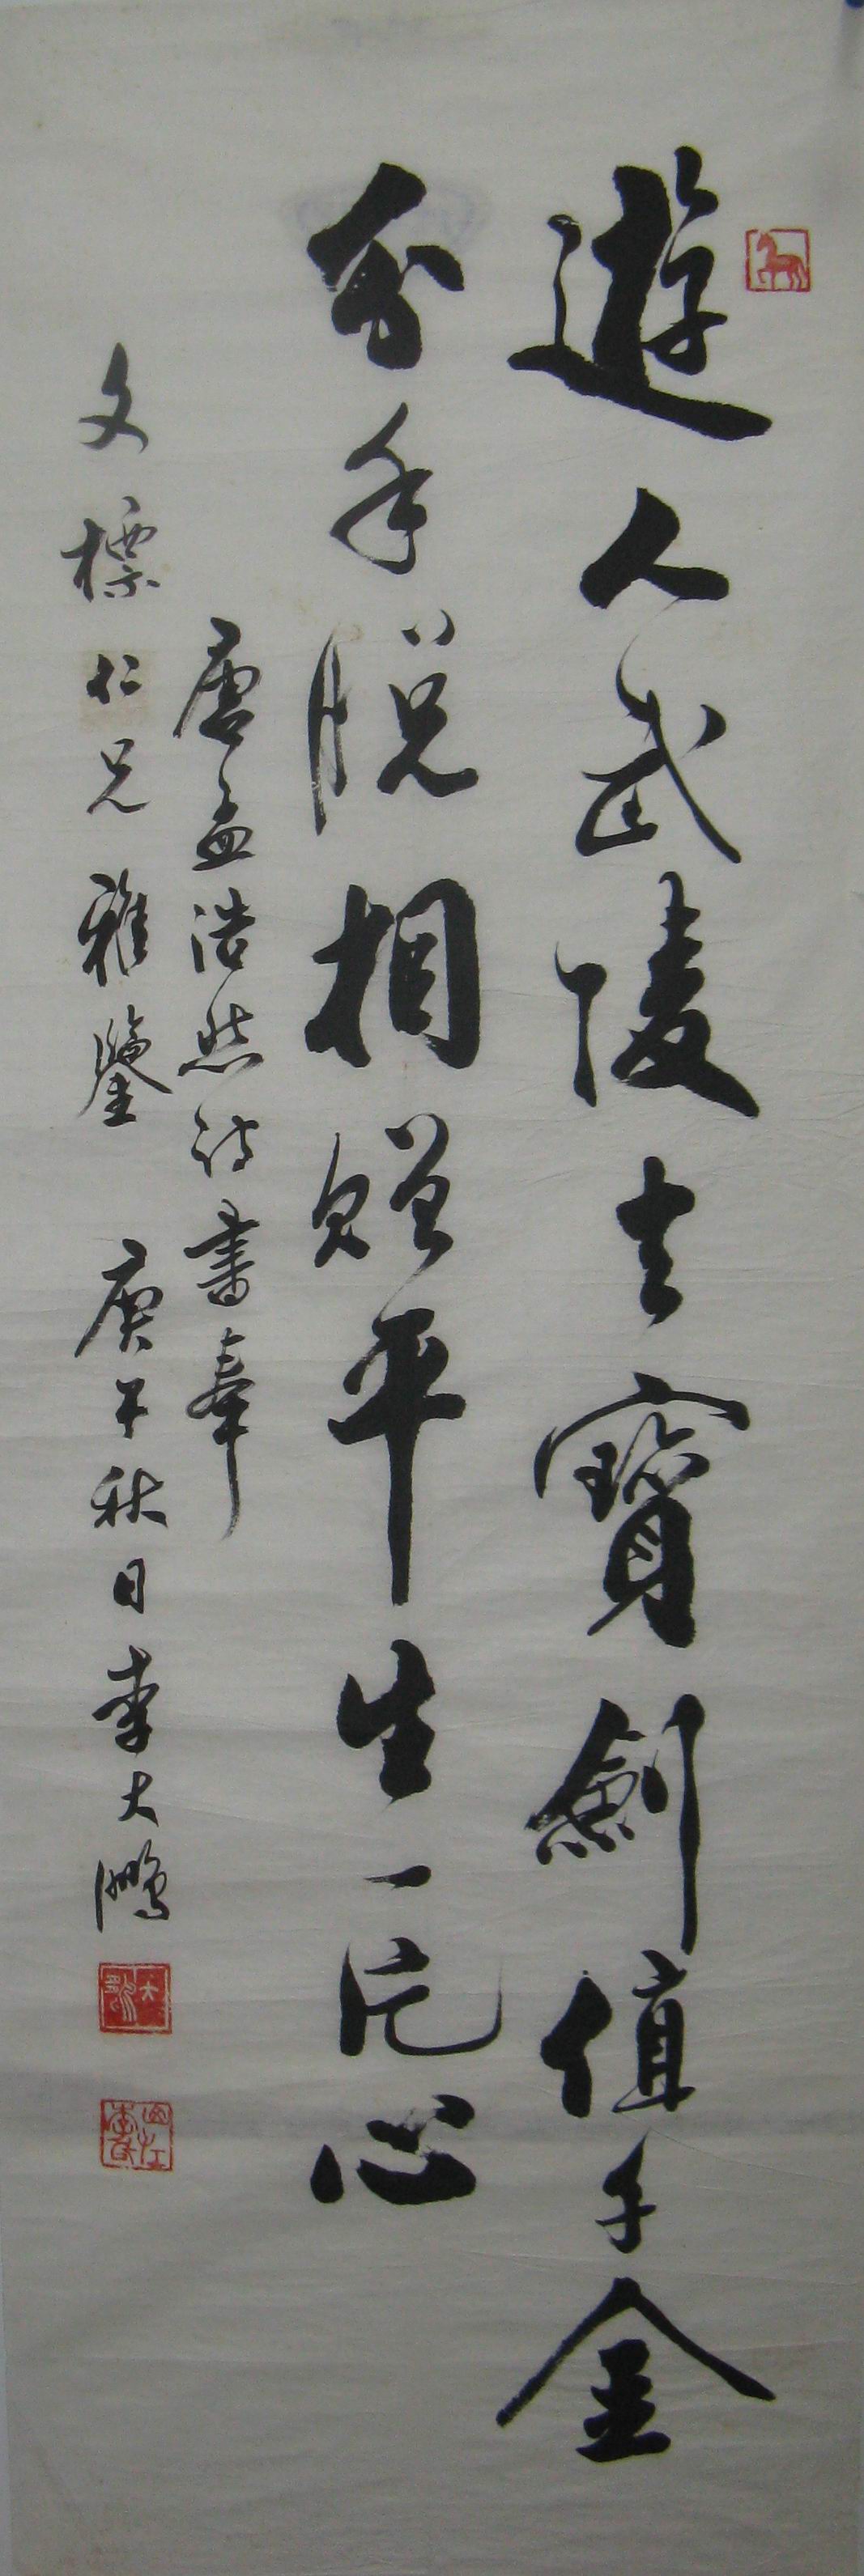 遊人武陵去寶劍值千金
分手脫相贈平生一片心
唐孟浩然詩書奉
文標仁兄雅鑒 庚午秋日李大鵬